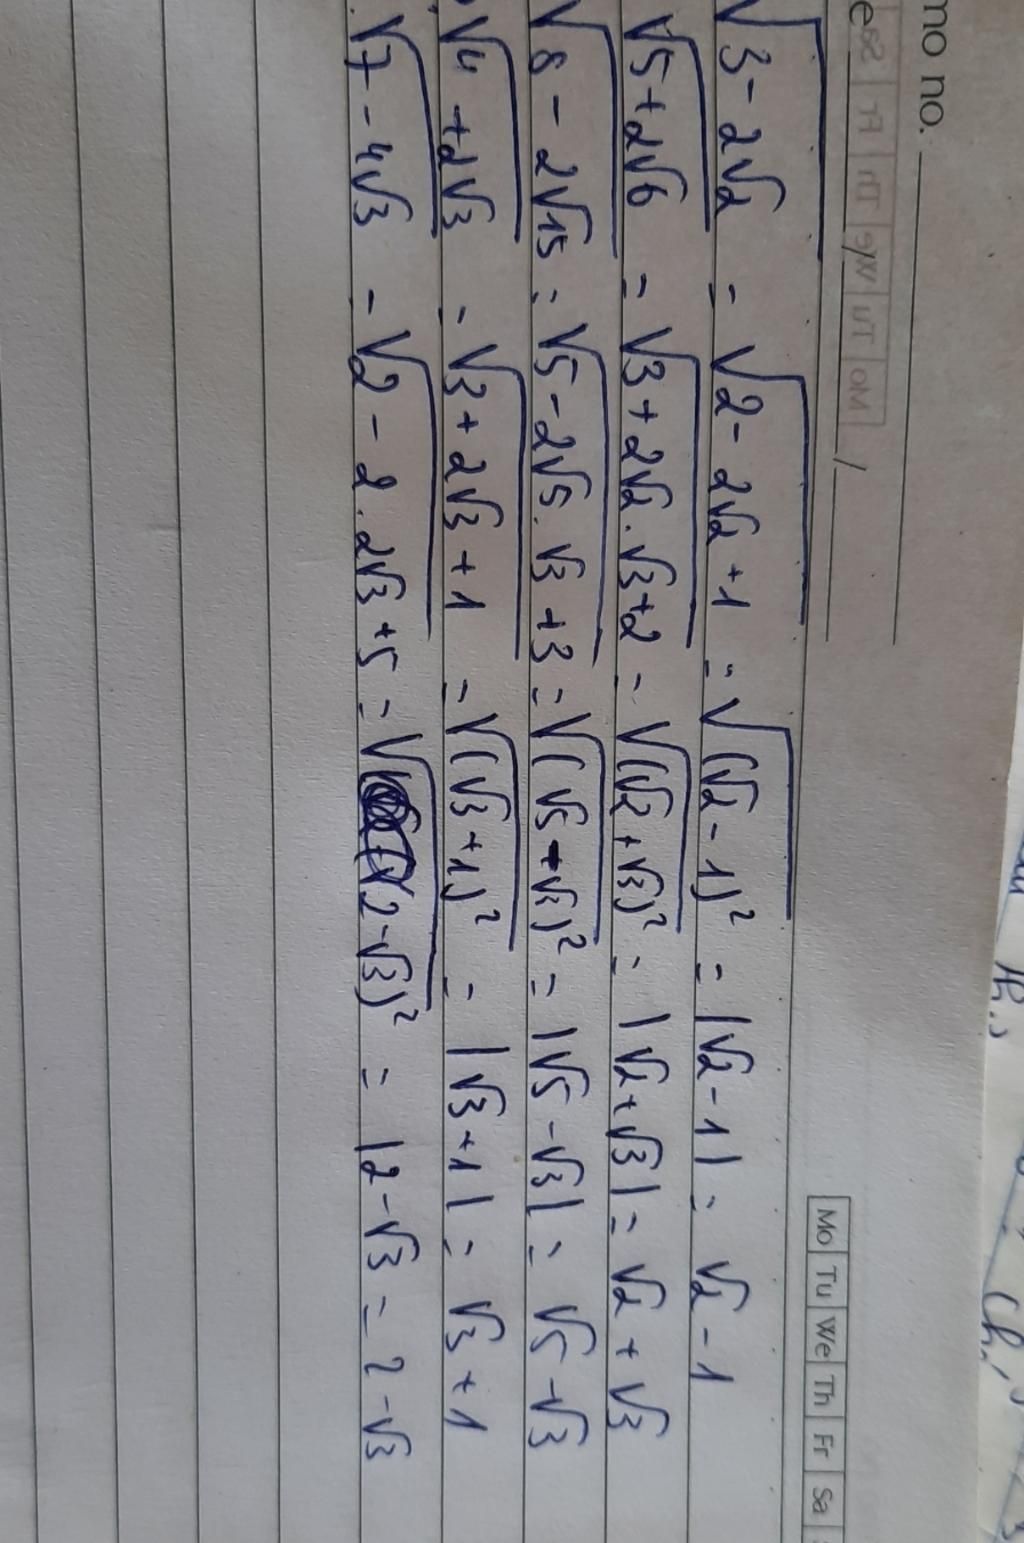 mo no.
Mo Tu We Th Fr Sa
√(3 - 2√2) = √(2 - 2√2 + 1) = √((√2 - 1)²) = |√2 - 1| = √2 - 1
√(5 + 2√6) = √(3 + 2√2 . √3 + 2) = √((√2 + √3)²) = |√2 + √3| = √2 + √3
√(8 - 2√15) = √(5 - 2√5 . √3 + 3) = √((√5 - √3)²) = |√5 - √3| = √5 - √3
√(4 + 2√3) = √(3 + 2√3 + 1) = √((√3 + 1)²) = |√3 + 1| = √3 + 1
√(7 - 4√3) = √(2 - 2 . 2√3 + 5) = √((2 - √3)²) = |2 - √3 = 2 - √3